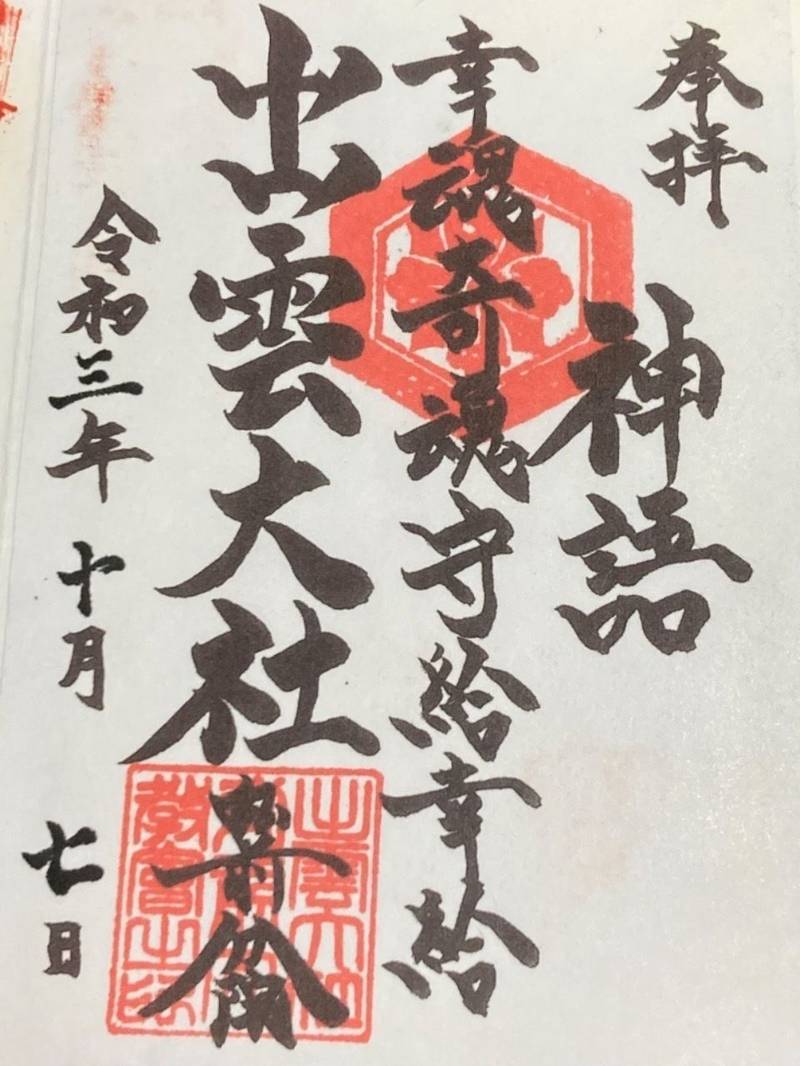 奉拝
神語
幸魂奇魂守給幸給
出雲大社
令和三年 十月 七日
出雲大社
教會之印